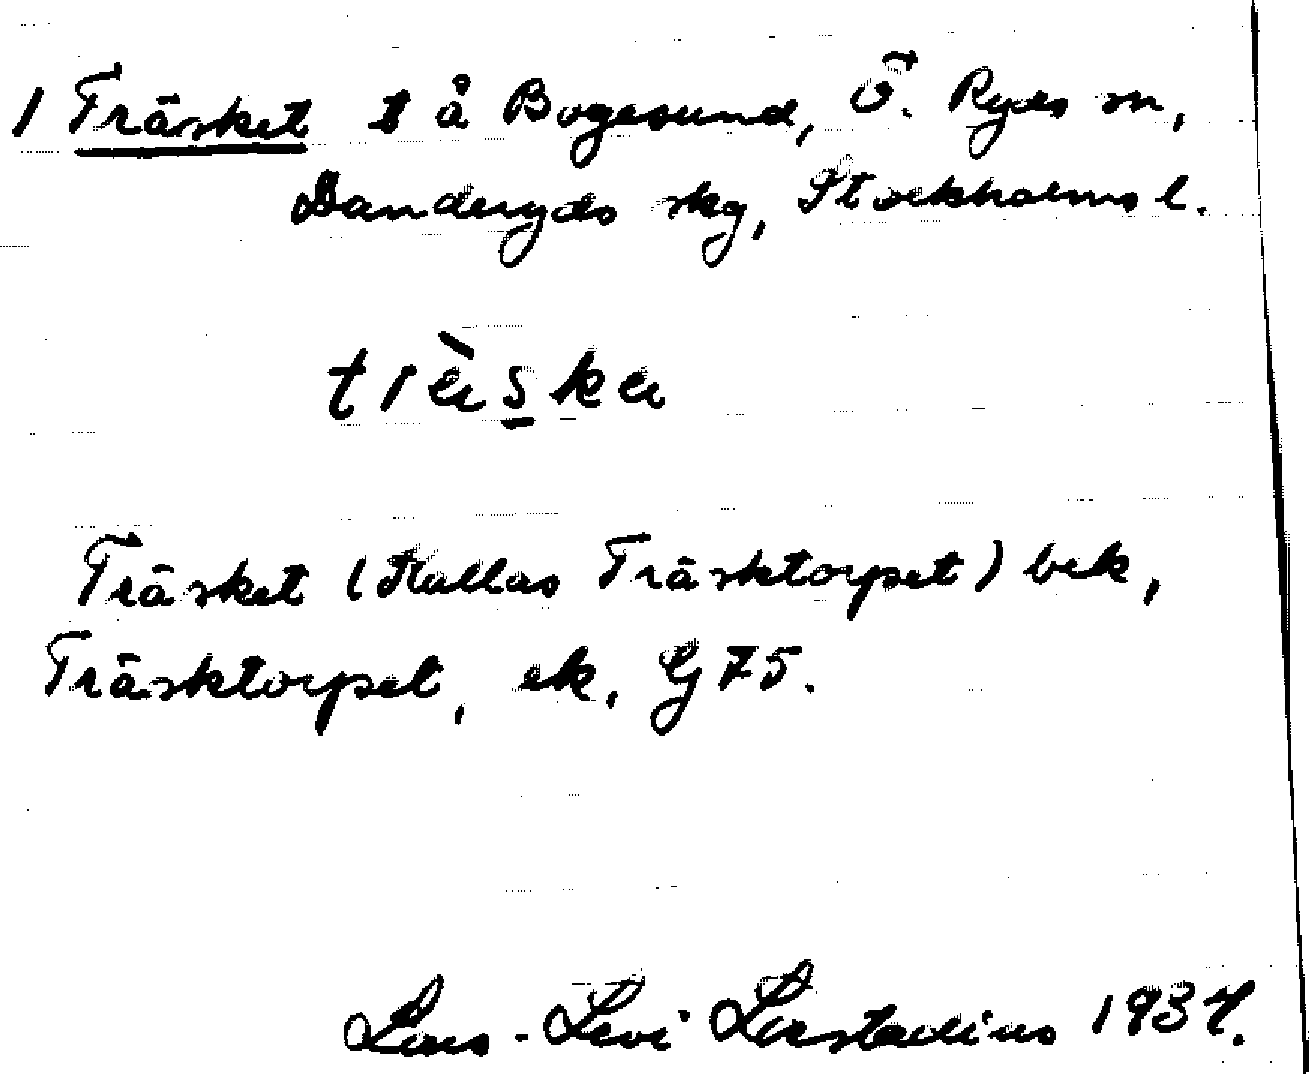 1 Träsket t å Bogesund, Ö. Ryds sn,
Danderyds skg, Stockholms l.
träska
Träsket (Kallas Träsktorpet) bek,
Träsktorpet, ek, G75.
Lars-Levi Læstadius 1937.